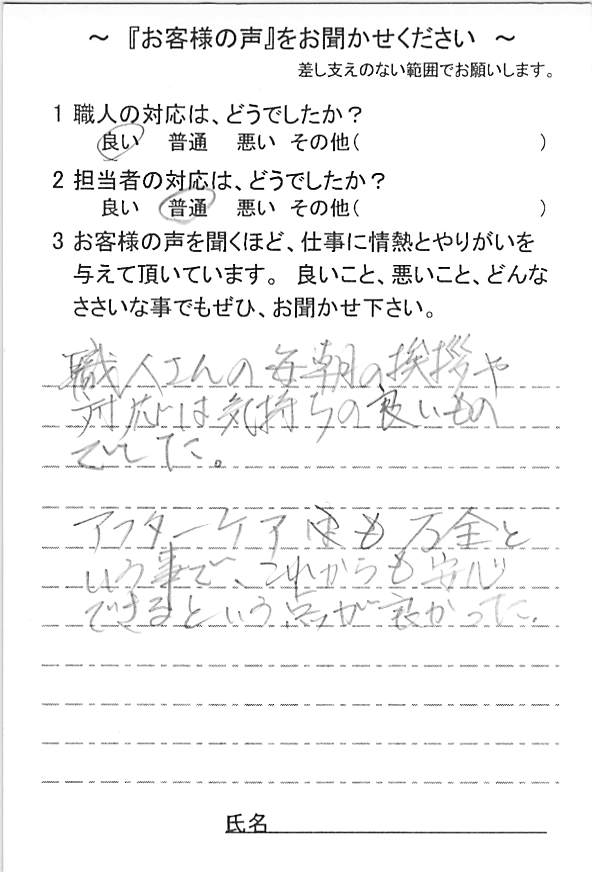 ～ 『お客様の声』をお聞かせください ～
差し支えのない範囲でお願いします。
1 職人の対応は、どうでしたか？
良い 普通 悪い その他( )
2 担当者の対応は、どうでしたか？
良い 普通 悪い その他( )
3 お客様の声を聞くほど、仕事に情熱とやりがいを
与えて頂いています。 良いこと、悪いこと、どんな
ささいな事でもぜひ、お聞かせ下さい。
職人さんの毎朝の挨拶や
対応は気持ちの良いもの
でした。
アフターケアも万全と
いう事で、これからも安心
できるという点が良かった.
氏名